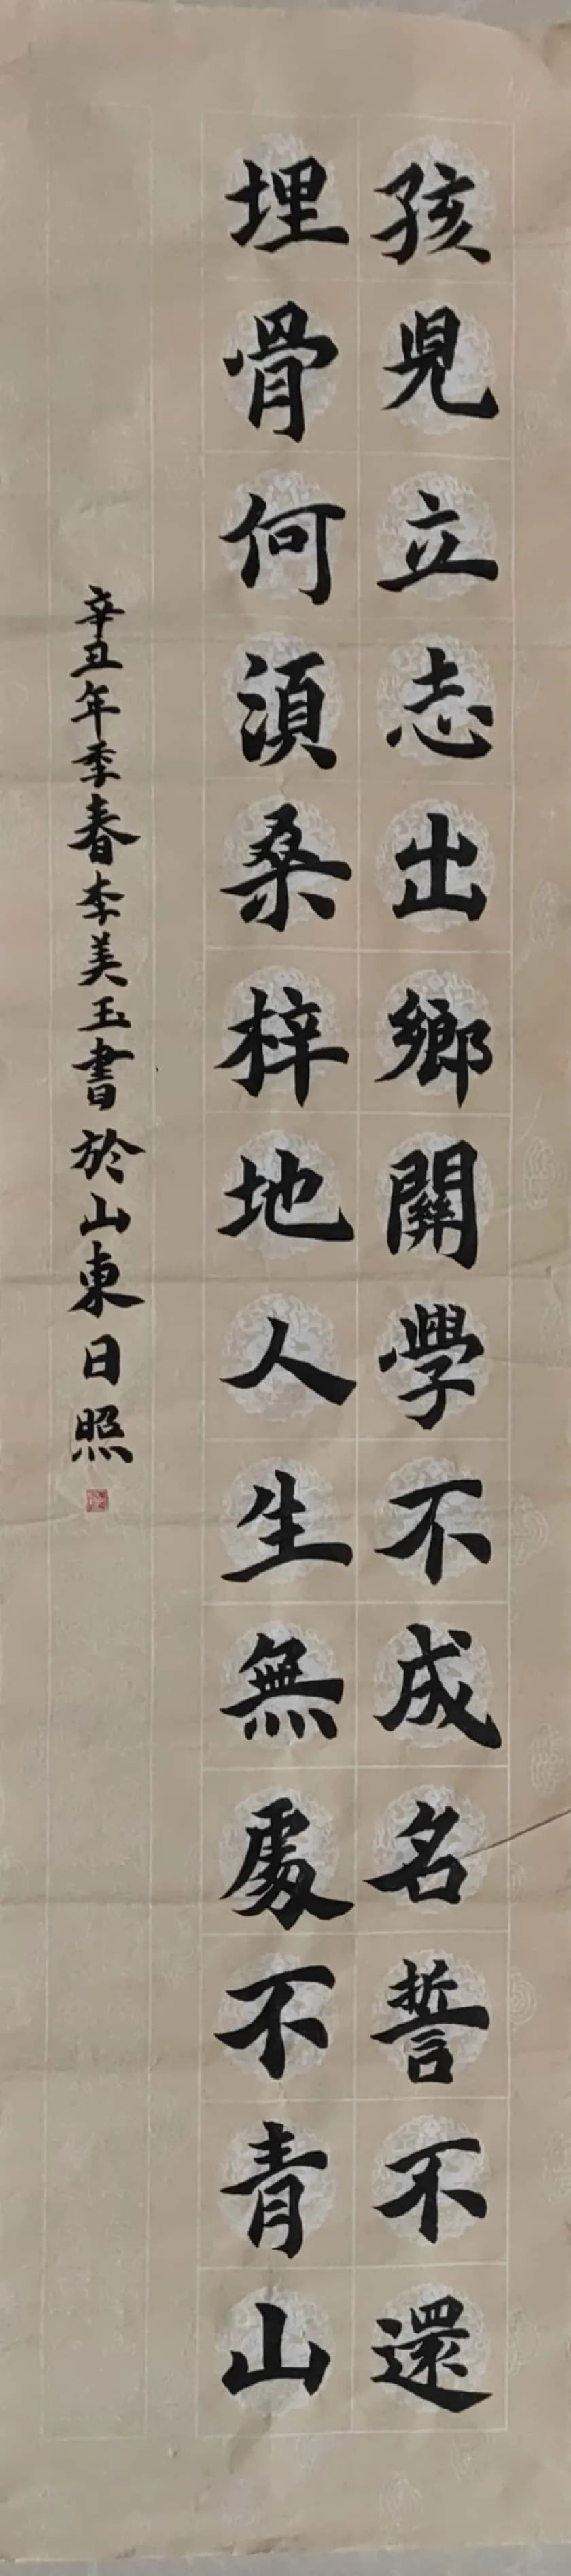 孩兒立志出鄉關學不成名誓不還
埋骨何須桑梓地人生無處不青山
辛丑年季春李美玉書於山東日照